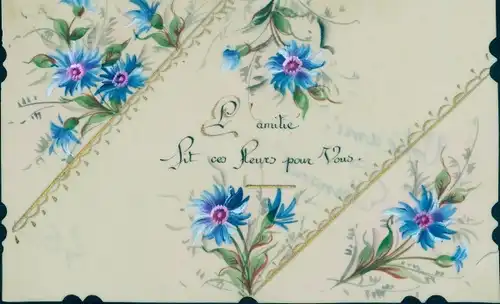 L'amitie
fit ces fleurs pour Vous.